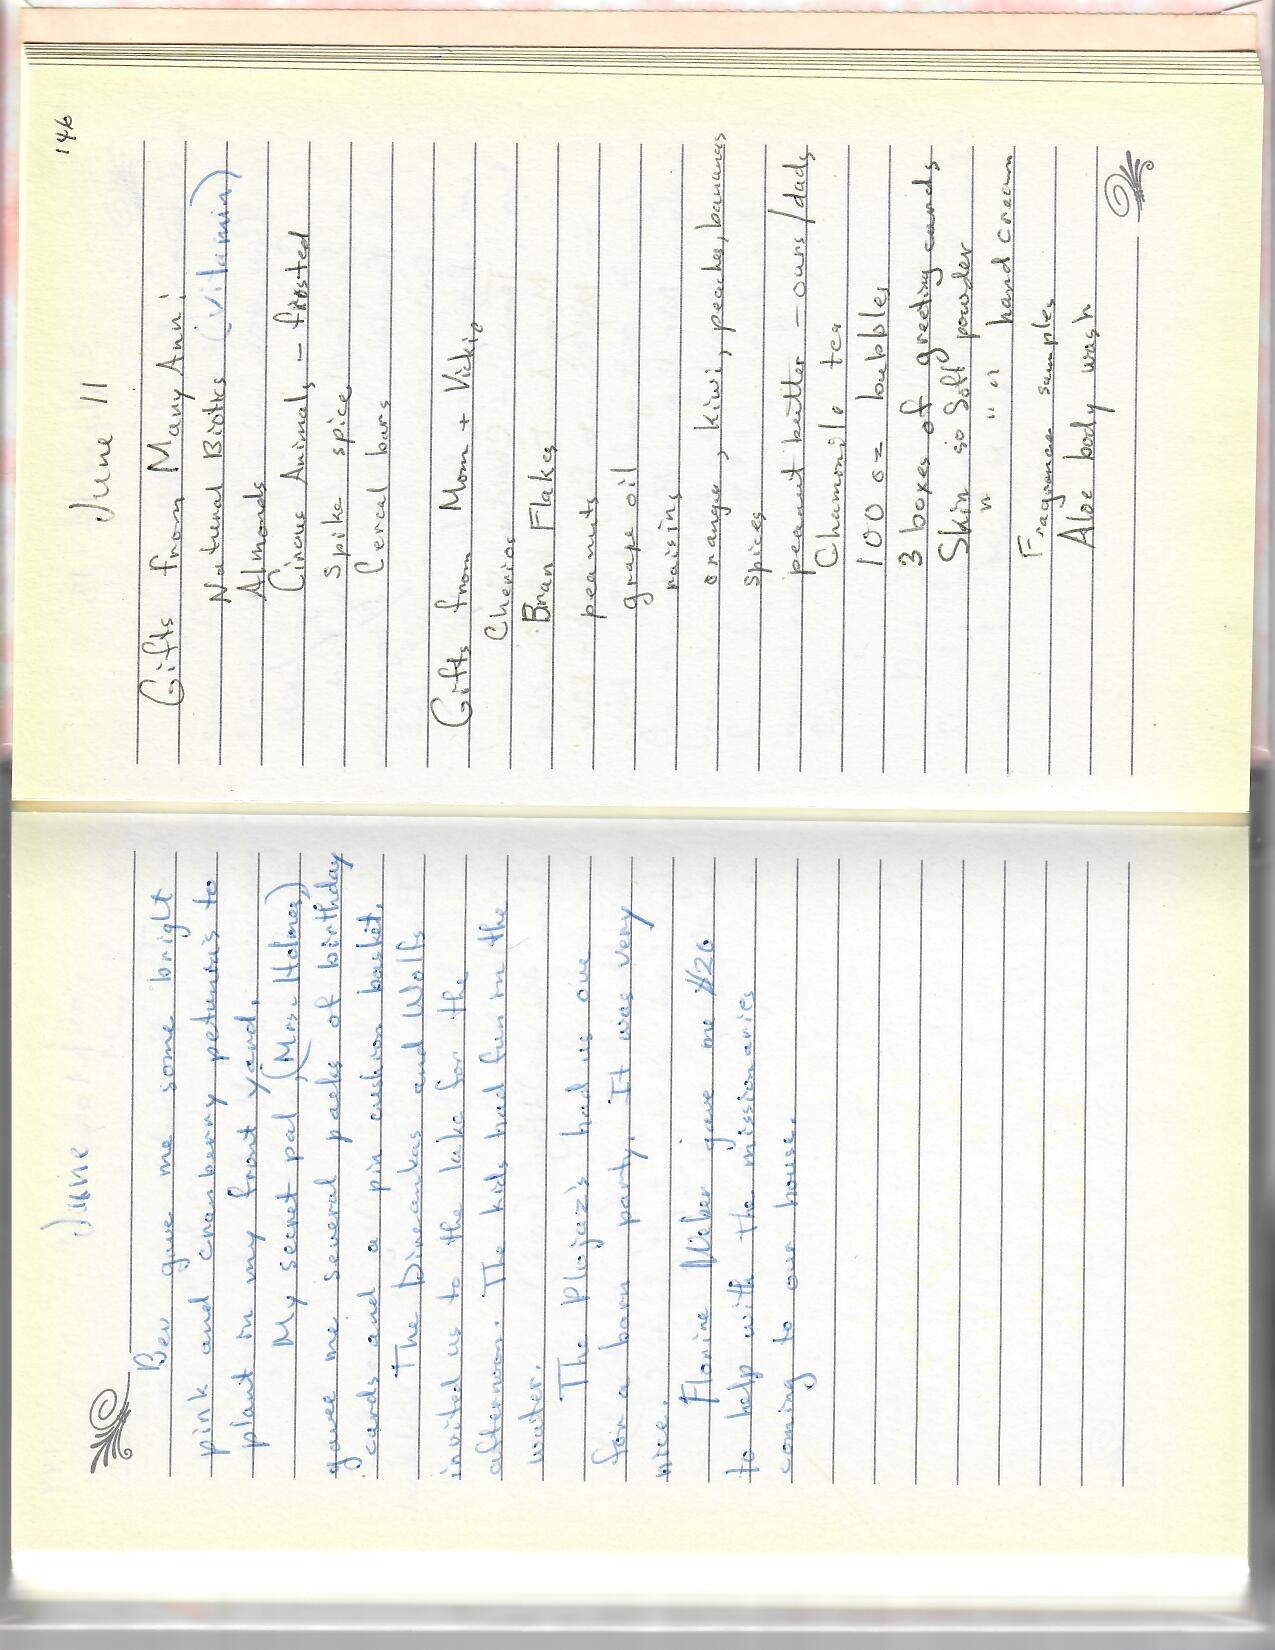 June
Bev gave me some bright
pink and cranberry petunia's to
plant in my front yard.
My secret pal, (Mrs. Holmes)
gave me several packs of birthday
cards and a pin cushion basket.
The and Wolfs
invited us to the lake for the
afternoon. The kids had fun in the
water.
The had us over
for a barn party. It was very
nice.
Florine Weber gave me $20
to help with the missionaries
coming to our house.
146
June 11
Gifts from Mary Ann:
Natural Biotics (vitamin)
Almonds
Circus Animals - frosted
Spike spice
Cereal bars
Gifts from Mom + Vickie
Cherios
Bran Flakes
peanuts
grape oil
raisins
oranges, kiwi, peaches, bananas
spices
peanut butter - ours/dads
Chamomile tea
100 oz bubbles
3 boxes of greeting cards
Skin so Soft powder
" " " hand cream
Fragrance samples
Aloe body wash